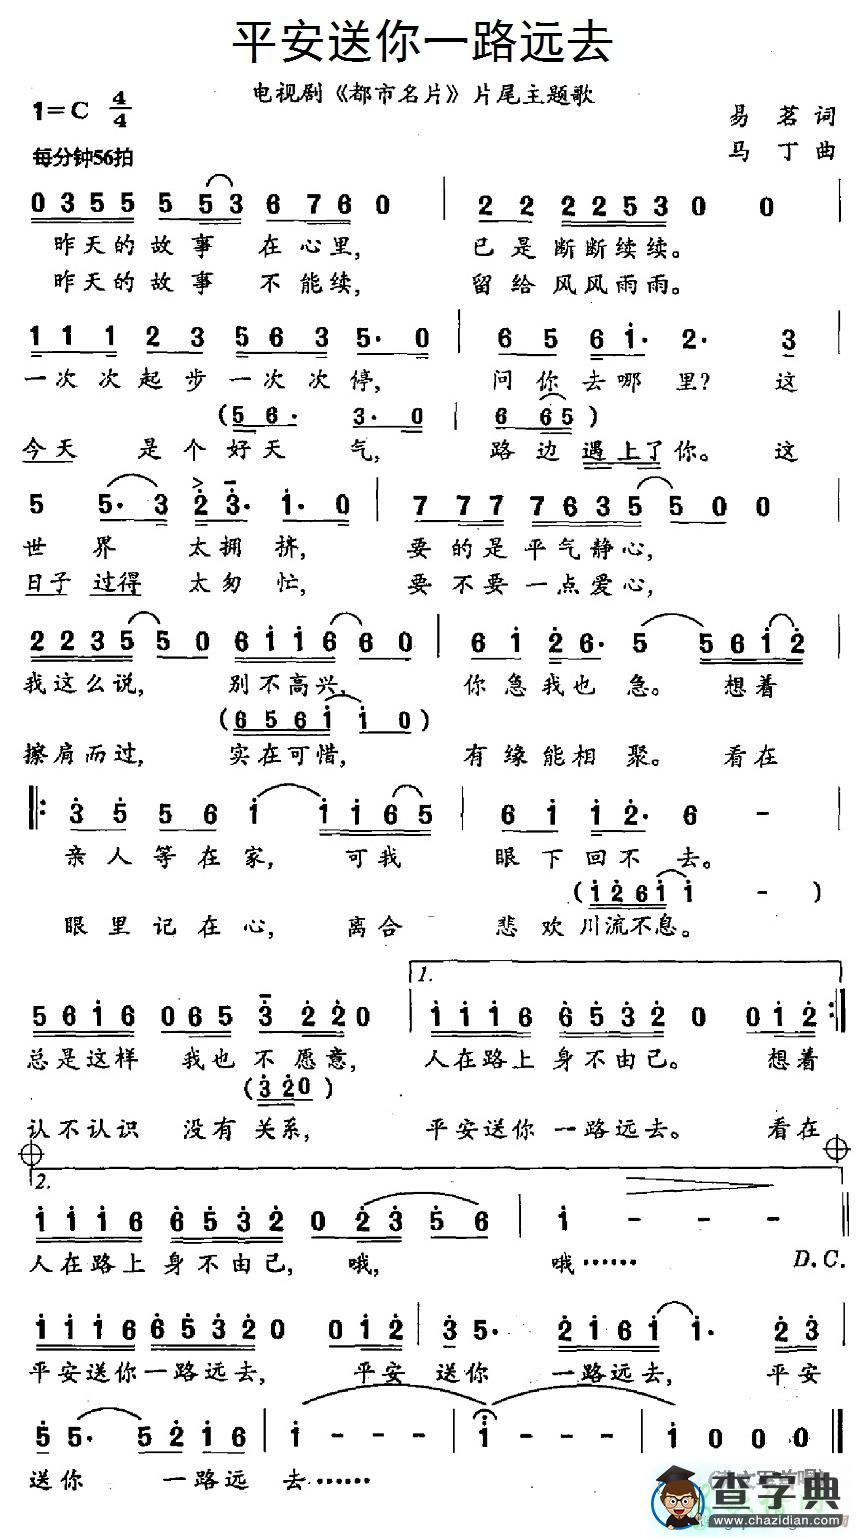 平安送你一路远去
电视剧《都市名片》片尾主题歌
1=C 4/4
易茗词
每分钟56拍
马丁曲
0 3 5 5 5 5 5 3 6 7 6 0 | 2 2 2 2 5 3 0 0 |
昨天的故事 在心里, 已是断断续续。
昨天的故事 不能续, 留给风风雨雨。
1 1 1 2 3 5 6 3 5· 0 | 6 5 6 i· 2· 3
一次次起步一次次停, 问你去哪里? 这
(5 6· 3· 0 | 6 6 5)
今天 是个好天气, 路边遇上了你。这
5 5· 3 2 3· i· 0 | 7 7 7 7 6 3 5 5 0 0 |
世界 太拥挤, 要的是平气静心,
日子过得 太匆忙, 要不要一点爱心,
2 2 3 5 5 0 6 i i 6 6 0 | 6 i 2 6· 5 5 6 i 2 |
我这么说, 别不高兴, 你急我也急。想着
(6 5 6 i i 0)
擦肩而过, 实在可惜, 有缘能相聚。看在
‖: 3 5 5 6 i i i 6 5 | 6 i i 2· 6 - |
亲人等在家, 可我 眼下回不去。
(i 2 6 i i - )
眼里记在心, 离合 悲欢川流不息。
1.
5 6 i 6 0 6 5 3 2 2 0 | i i i 6 6 5 3 2 0 0 i 2 :‖
总是这样 我也不愿意, 人在路上身不由己。 想着
(3 2 0)
认不认识 没有关系, 平安送你一路远去。 看在
2.
i i i 6 6 5 3 2 0 2 3 5 6 | i - - - |
人在路上身不由己, 哦, 哦…… D.C.
i i i 6 6 5 3 2 0 0 i 2 | 3 5· 2 i 6 i i· 2 3 |
平安送你一路远去, 平安 送你 一路远去, 平安
5 5· 5 2 i 6 | i - - - | i - - - | i 0 0 0 ‖
送你 一路远 去………
查字典
www.chazidian.com